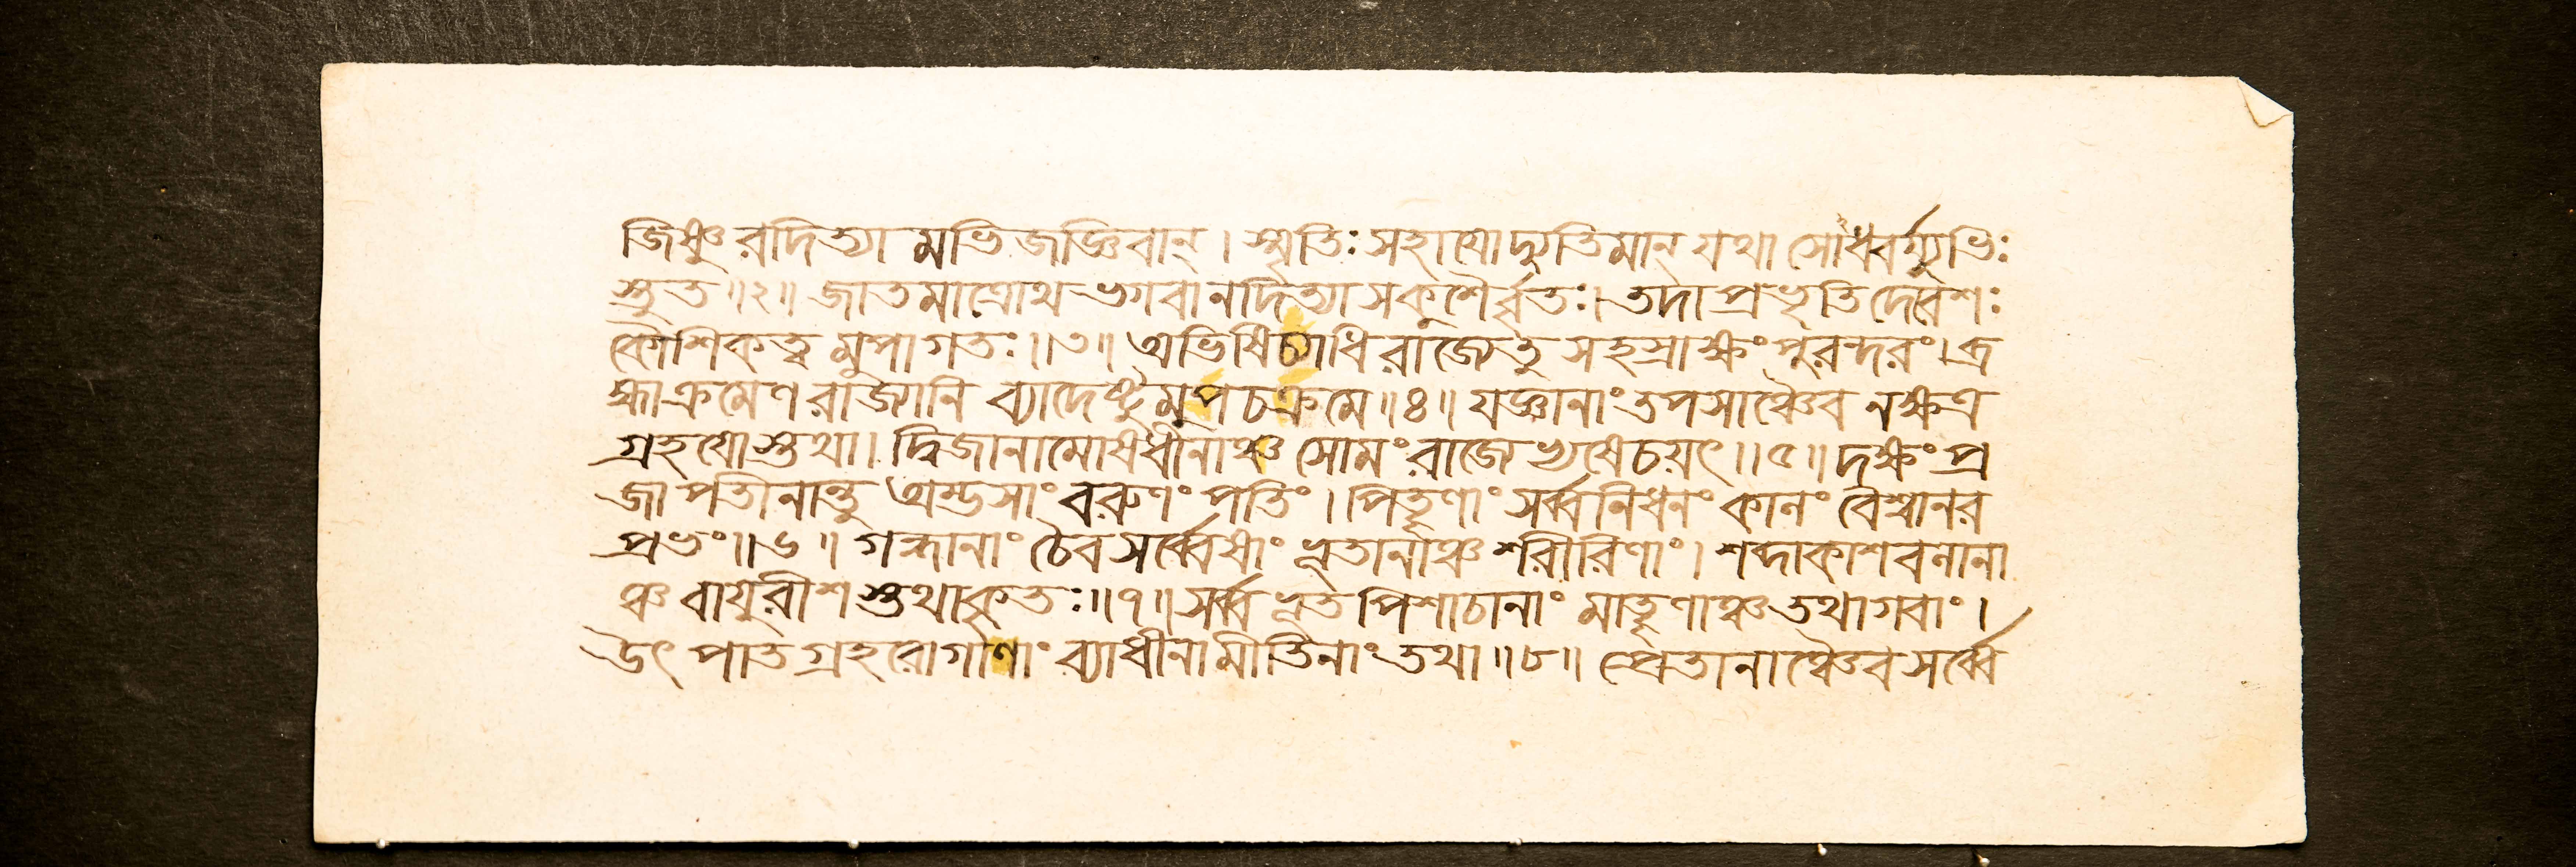 জিষ্ণু রদিত্যা মভি জজ্ঞিবান্। স্মৃতিঃ সহাযো দ্যুতিমান্ যথা সোধ্বর্য্যুভিঃ
স্তুত॥২॥ জাতমাত্রোথ ভগবানদিত্যাসকুশৈর্ব্বৃতঃ। তদাপ্রভৃতি দেবেশঃ
কৌশিকত্ব মুপাগতঃ॥৩॥ অভিষিচ্যাধিরাজ্যেতু সহস্রাক্ষং পুরন্দরং। ব্র
হ্মাক্রমেণ রাজ্যানি ব্যাদেষ্টু মুপচক্রমে॥৪॥ যজ্ঞানাং তপসাঞ্চৈব নক্ষত্র
গ্রহযোস্তথা। দ্বিজানামোষধীনাঞ্চ সোমং রাজ্যেভ্যষেচয়ৎ॥৫॥ দক্ষং প্র
জাপতীনান্তু অম্ভসাং বরুণং পতিং। পিতৄণাং সর্ব্বনিধনং কালং বৈশ্বানর
প্রভং॥৬॥ গন্ধানাং চৈব সর্ব্বেষাং ভূতানাঞ্চ শরীরিণাং। শব্দাকাশবলানা
ঞ্চ বাযুরীশস্তথাকৃতঃ॥৭॥ সর্ব্ব ভূত পিশাচানাং মাতৄণাঞ্চ তথাগবাং।
উৎপাত গ্রহরোগাণাং ব্যাধীনামীতিনাং তথা॥৮॥ প্রেতানাঞ্চৈব সর্ব্বে